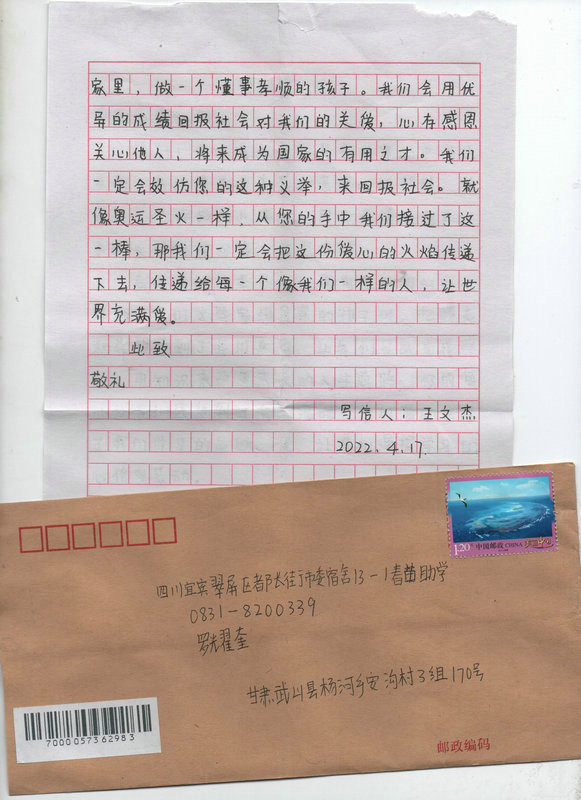 家里，做一个懂事孝顺的孩子。我们会用优
异的成绩回报社会对我们的关爱，心存感恩
关心他人，将来成为国家的有用之才。我们
一定会效仿您的这种义举，来回报社会。就
像奥运圣火一样，从您的手中我们接过了这
一棒，那我们一定会把这份爱心的火焰传递
下去，传递给每一个像我们一样的人，让世
界充满爱。
此致
敬礼
写信人：王文杰
2022.4.17.
1.20元 中国邮政 CHINA
四川宜宾翠屏区都长街市委宿舍13-1春苗助学
0831-8200339
罗翟奎
甘肃武山县杨河乡安沟村3组170号
7000057362983
邮政编码